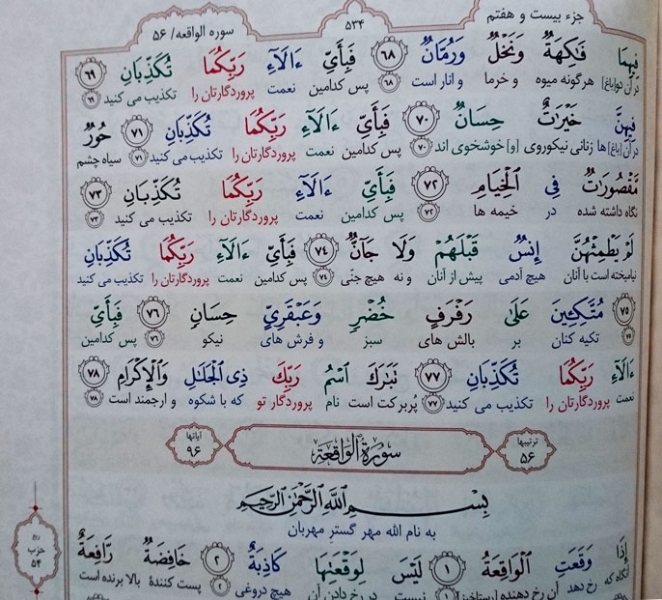 جزء بیست و هفتم
۵۳۴
سوره الواقعه/ ۵۶
فِيهِمَا فَٰكِهَةٌ وَنَخْلٌ وَرُمَّانٌ ۶۸ فَبِأَيِّ ءَالَآءِ رَبِّكُمَا تُكَذِّبَانِ ۶۹
در آن دو[باغ] هرگونه میوه و خرما و انار است ۶۸ پس کدامین نعمت پروردگارتان را تکذیب می کنید ۶۹
فِيهِنَّ خَيْرَٰتٌ حِسَانٌ ۷۰ فَبِأَيِّ ءَالَآءِ رَبِّكُمَا تُكَذِّبَانِ ۷۱ حُورٌ
در آن [باغ] ها زنانی نیکوروی [و] خوشخوی اند ۷۰ پس کدامین نعمت پروردگارتان را تکذیب می کنید ۷۱ سیاه چشم
مَّقْصُورَٰتٌ فِي الْخِيَامِ ۷۲ فَبِأَيِّ ءَالَآءِ رَبِّكُمَا تُكَذِّبَانِ ۷۳
نگاه داشته شده در خیمه ها ۷۲ پس کدامین نعمت پروردگارتان را تکذیب می کنید ۷۳
لَمْ يَطْمِثْهُنَّ إِنسٌ قَبْلَهُمْ وَلَا جَانٌّ ۷۴ فَبِأَيِّ ءَالَآءِ رَبِّكُمَا تُكَذِّبَانِ
نیامیخته است با آنان هیچ آدمی پیش از آنان و نه هیچ جنّی ۷۴ پس کدامین نعمت پروردگارتان را تکذیب می کنید
۷۵ مُتَّكِـِٔينَ عَلَىٰ رَفْرَفٍ خُضْرٍ وَعَبْقَرِيٍّ حِسَانٍ ۷۶ فَبِأَيِّ
۷۵ تکیه کنان بر بالش های سبز و فرش های نیکو ۷۶ پس کدامین
ءَالَآءِ رَبِّكُمَا تُكَذِّبَانِ ۷۷ تَبَٰرَكَ اسْمُ رَبِّكَ ذِي الْجَلَٰلِ وَالْإِكْرَامِ ۷۸
نعمت پروردگارتان را تکذیب می کنید ۷۷ پُربرکت است نام پروردگار تو که با شکوه و ارجمند است ۷۸
ترتیبها ۵۶
سورة الواقعة
آیاتها ۹۶
بِسْمِ اللَّهِ الرَّحْمَٰنِ الرَّحِيمِ
به نام الله مهر گستر مهربان
إِذَا وَقَعَتِ الْوَاقِعَةُ ۱ لَيْسَ لِوَقْعَتِهَا كَاذِبَةٌ ۲ خَافِضَةٌ رَّافِعَةٌ
آنگاه که رخ دهد آن رخ دهنده نیست در رخ دادن آن هیچ دروغی ۲ پست کنندهٔ بالا برنده است
حزب
۵۴